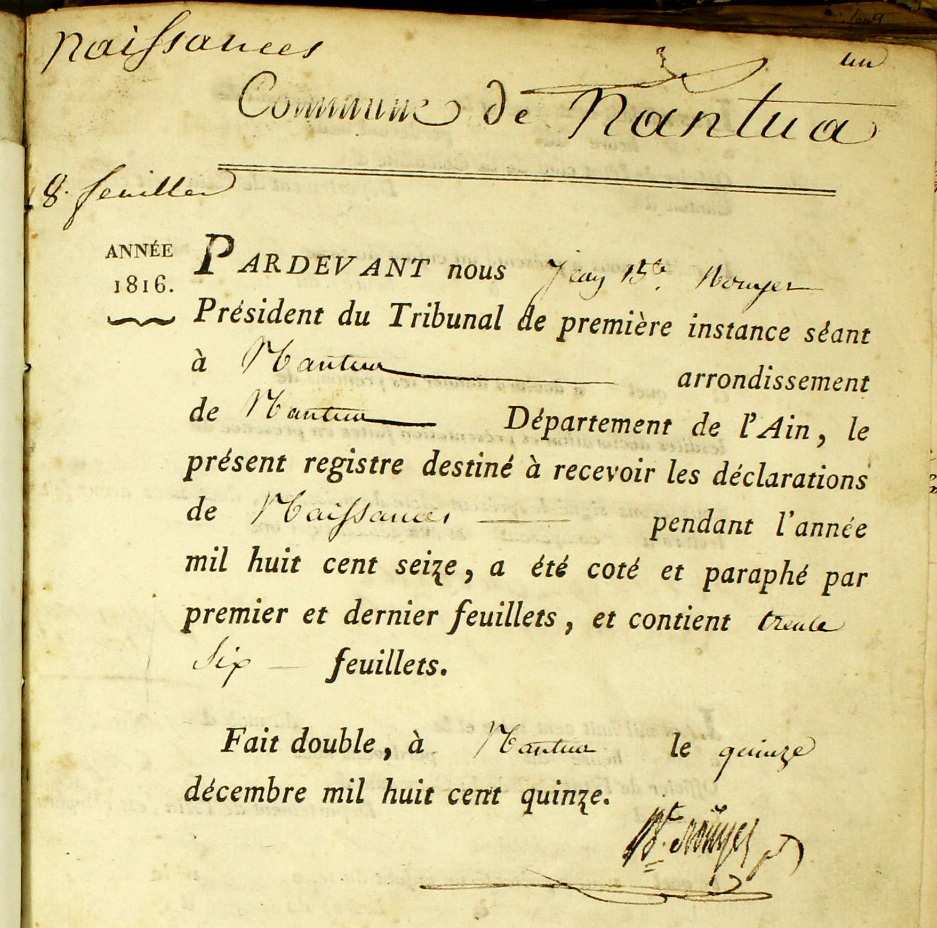 naissances
un
Commune de Nantua
18. feuilles
ANNÉE
1816.
PARDEVANT nous Jean Bte. Rouyer
Président du Tribunal de première instance séant
à Nantua arrondissement
de Nantua Département de l'Ain, le
présent registre destiné à recevoir les déclarations
de Naissances pendant l'année
mil huit cent seize, a été coté et paraphé par
premier et dernier feuillets, et contient trente
six feuillets.
Fait double, à Nantua le quinze
décembre mil huit cent quinze.
Bt. Rouyer